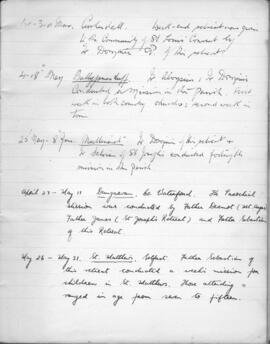 1st - 3rd Mar. Week-end retreat was given
to the Community of St Louis Convent by
Fr of this retreat
4-18th May Ballyfr Fr Aloysius, Fr
Conducted a Mission in the Parish. First
week in both country churches; second week in
Town.
25 May - 8 June Mullin Fr of this retreat &
Fr of St Joseph's conducted fortnights
mission in the Parish
April 27 - May 11 Dungarvan, Co. Waterford. The Paschal
mission was conducted by Father
Father James (St Joseph's Retreat) and Father Sebastian
of this Retreat.
May 26 - May 31. St. Matthews, Belfast. Father Sebastian of
this retreat conducted a week's mission for
children in St. Matthews. Those attending
ranged in age from seven to fifteen.